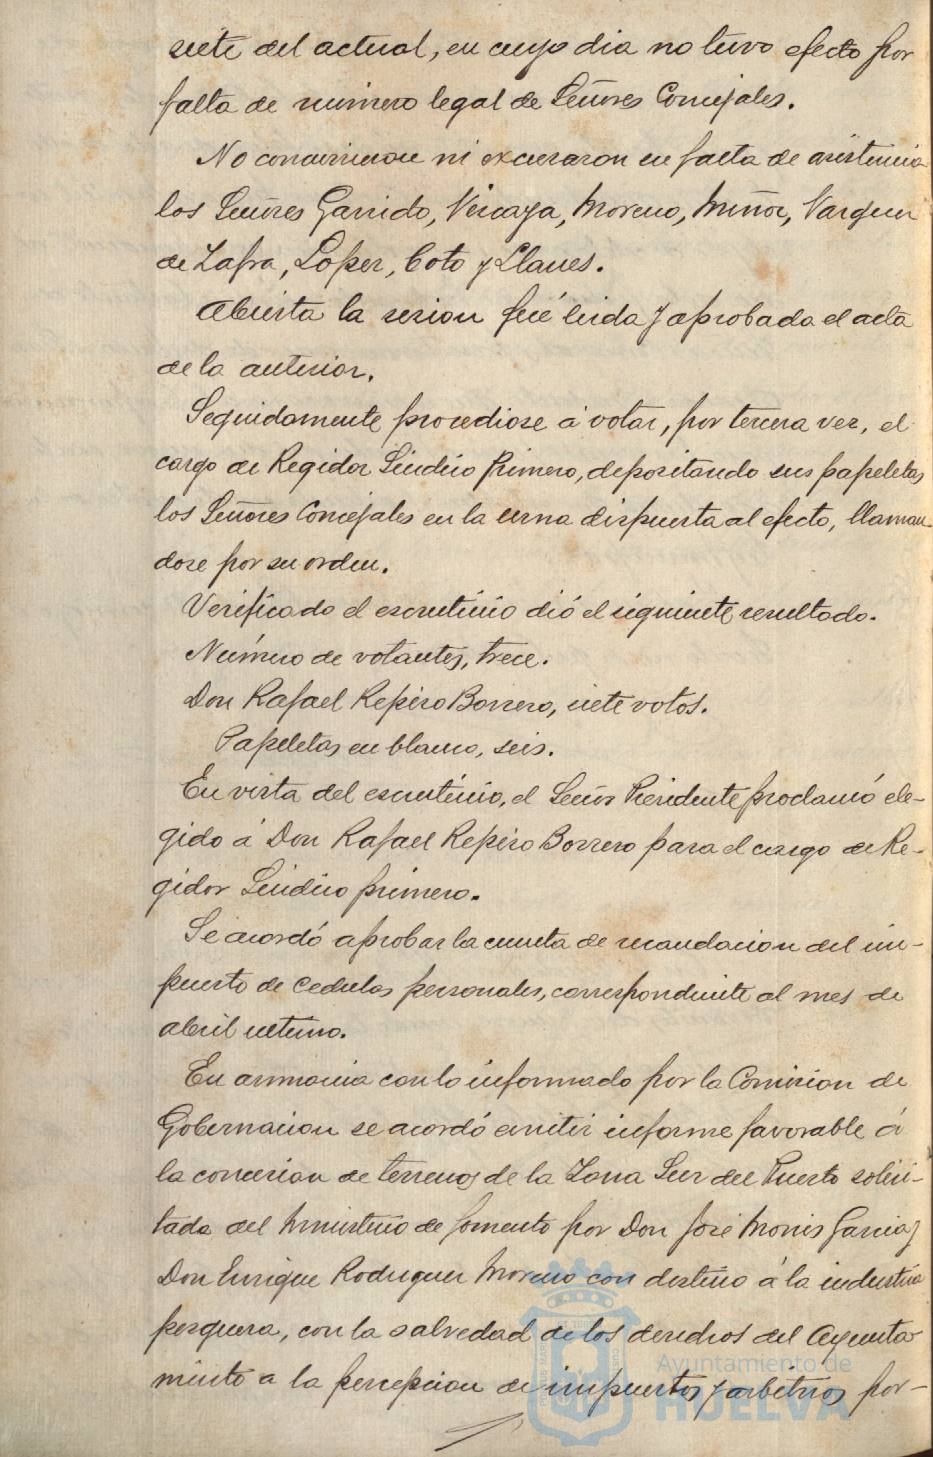 siete del actual, en cuyo dia no tuvo efecto por
falta de número legal de Señores Concejales.
No concurrieron ni excusaron su falta de asistencia
los Señores Garrido, Vizcaya, Moreno, Muñoz, Vazquez
de Zafra, Lopez, Coto y Llanes.
Abierta la sesion fué leida y aprobada el acta
de la anterior.
Seguidamente procediose á votar, por tercera vez, el
cargo de Regidor Síndico primero, depositando sus papeletas
los Señores Concejales en la urna dispuesta al efecto, llaman-
dose por su orden.
Verificado el escrutinio dió el siguiente resultado.
Número de votantes, trece.
Don Rafael Repiso Borrero, siete votos.
Papeletas en blanco, seis.
En vista del escrutinio, el Señor Presidente proclamó ele-
gido á Don Rafael Repiso Borrero para el cargo de Re-
gidor Síndico primero.
Se acordó aprobar la cuenta de recaudacion del im-
puesto de cedulas personales, correspondiente al mes de
abril ultimo.
En armonia con lo informado por la Comision de
Gobernacion se acordó emitir informe favorable á
la concesion de terrenos de la Zona Sur del Puerto solici-
tada del Ministerio de fomento por Don José Monis Garcia y
Don Enrique Rodriguez Moreno con destino á la industria
pesquera, con la salvedad de los derechos del Ayunta-
miento a la percepcion de impuestos y arbitrios por-
Ayuntamiento de
HUELVA